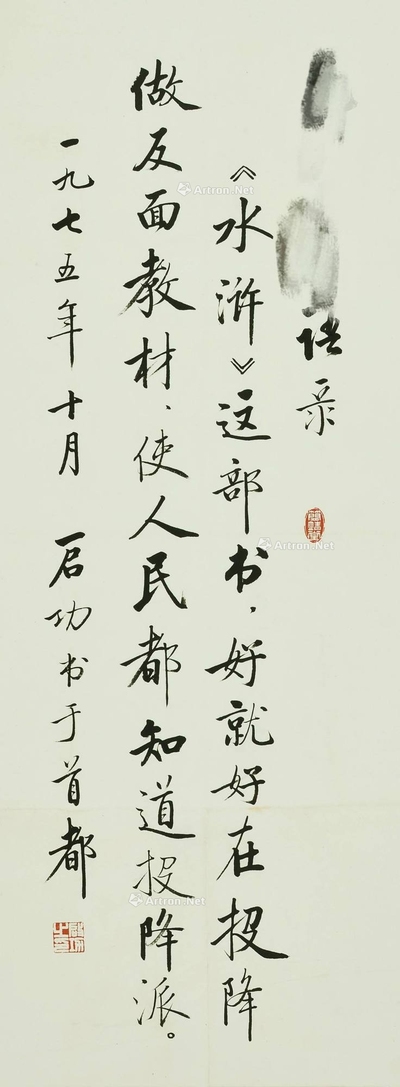 语录
《水浒》这部书，好就好在投降
做反面教材、使人民都知道投降派。
一九七五年十月 启功书于首都
启功之印
Artron.Net
Artron.Net
Artron.Net
Artron.Net